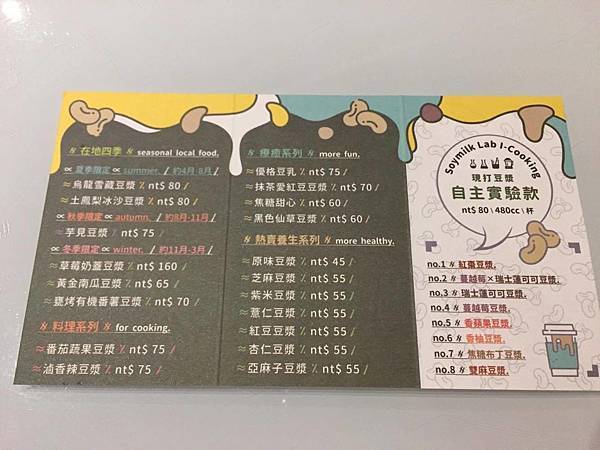 〃在地四季〃 seasonal local food.
∝ 夏季限定 ∝ summer. / 約4月-8月 /
≈烏龍雪藏豆漿 ٪ nt$ 80 /
≈土鳳梨冰沙豆漿 ٪ nt$ 80 /
∝ 秋季限定 ∝ autumn. / 約8月-11月 /
≈芋見豆漿 ٪ nt$ 75 /
∝ 冬季限定 ∝ winter. / 約11月-3月 /
≈草莓奶蓋豆漿 ٪ nt$ 160 /
≈黃金南瓜豆漿 ٪ nt$ 65 /
≈甕烤有機番薯豆漿 ٪ nt$ 70 /
〃料理系列〃 for cooking.
≈番茄蔬果豆漿 ٪ nt$ 75 /
≈滷香辣豆漿 ٪ nt$ 75 /
〃療癒系列〃 more fun.
≈優格豆乳 ٪ nt$ 75 /
≈抹茶愛紅豆豆漿 ٪ nt$ 70 /
≈焦糖甜心 ٪ nt$ 60 /
≈黑色仙草豆漿 ٪ nt$ 60 /
〃熱賣養生系列〃 more healthy.
≈原味豆漿 ٪ nt$ 45 /
≈芝麻豆漿 ٪ nt$ 55 /
≈紫米豆漿 ٪ nt$ 55 /
≈薏仁豆漿 ٪ nt$ 55 /
≈紅豆豆漿 ٪ nt$ 55 /
≈杏仁豆漿 ٪ nt$ 55 /
≈亞麻子豆漿 ٪ nt$ 55 /
Soymilk Lab I-Cooking
現打豆漿
自主實驗款
nt$ 80 \ 480cc \ 杯
no.1 〃 紅棗豆漿.
no.2 〃 蔓越莓×瑞士蓮可可豆漿.
no.3 〃 瑞士蓮可可豆漿.
no.4 〃 蔓越莓豆漿.
no.5 〃 香蘋果豆漿.
no.6 〃 香柚豆漿.
no.7 〃 焦糖布丁豆漿.
no.8 〃 雙麻豆漿.